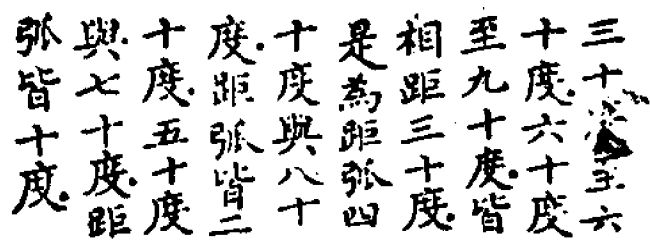 三十至六
十度六十度
至九十度皆
相距三十度
是為距弧四
十度與八十
度距弧皆二
十度五十度
與七十度距
弧皆十度